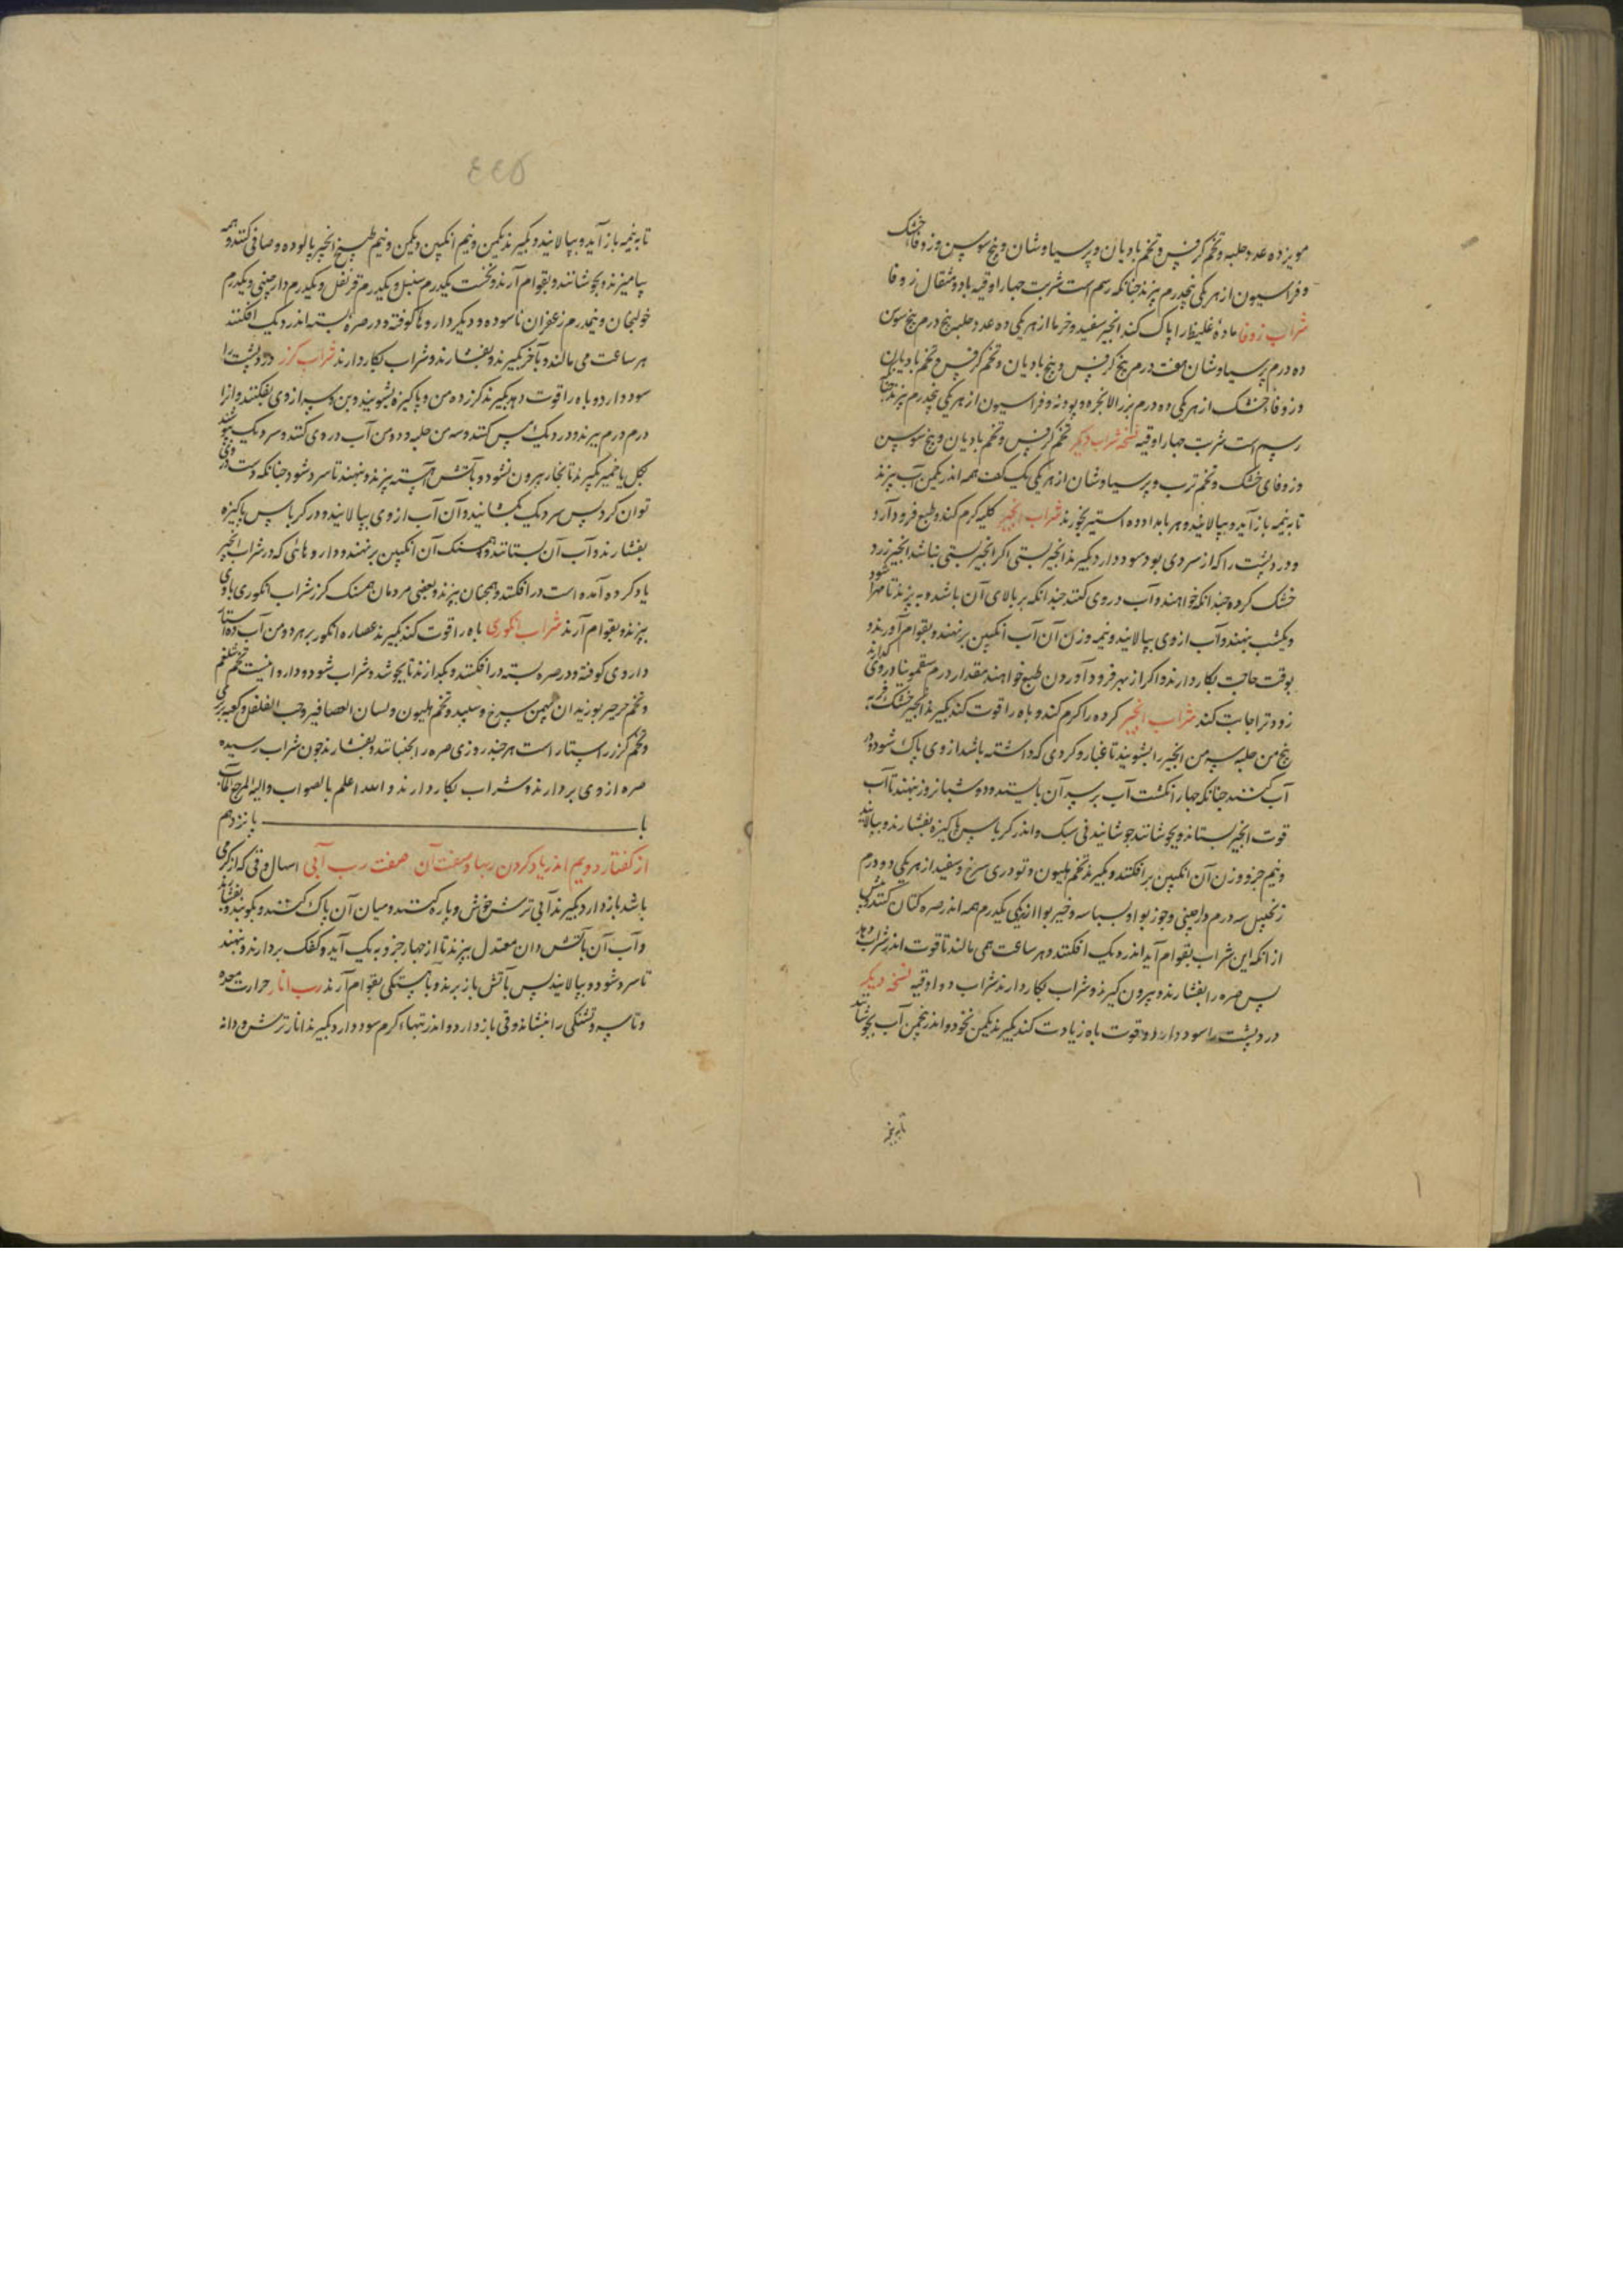 مویز ده عدد حلبه و تخم کرفس و تخم بادیان و پرسیاوشان و بیخ سوسن و زوفاء خشک
و فراسیون از هر یکی پنجدرم بپزند جنانکه رسم است شربت جهار اوقیه با دو مثقال زوفا
شراب زوفا مادهٔ غلیظ را پاک کند انجیر سفید و خرما از هر یکی ده عدد حلبه پنج درم بیخ سوسن
ده درم پرسیاوشان هفت درم بیخ کرفس و بیخ بادیان و تخم کرفس و تخم بادیان
و زوفاء خشک از هر یکی ده درم بزر الانجره و پودنه و فراسیون از هر یکی پنجدرم بپزند جنانکه
رسم است شربت جهار اوقیه نسخه شراب دیکر تخم کرفس و تخم بادیان و بیخ سوسن
و زوفای خشک و تخم ترب و پرسیاوشان از هر یکی یک کف همه اندر یکمن آب بپزند
تا به نیمه باز آید و بپالایند و هر بامداد ده استیر بخورند شراب انجیر کلیه کرم کند و طبع فرود آرد
و درد پشت را که از سردی بود سود دارد بکیرند انجیر بستی اکر انجیر بستی نباشد انجیر زرد
خشک کرده جندانکه خواهند و آب در وی کنند جندانکه بر بالای آن باشد و بپزند تا مهرا شود
و یکشب بنهند و آب از وی بپالایند و نیمه وزن آن آب انکبین بر نهند و بقوام آورند و
بوقت حاجت بکار دارند و اکر از بهر فرود آوردن طبع خواهند مقدار درم سقمونیا در وی کدازند
زودتر اجابت کند شراب انجیر کرده را کرم کند و باه را قوت کند بکیرند انجیر خشک فربه
پنج من حلبه سه من انجیر را بشویند تا غبار و کردی که داشته باشد از وی پاک شود و در
آب کنند جنانکه جهار انکشت آب بر سر آن بایستد و دو شبانروز بنهند تا آب
قوت انجیر بستاند و بجوشانند جوشانیدنی سبک و اندر کرباس پاکیزه بفشارند و بپالایند
و نیم جزو وزن آن انکبین بر افکنند و بکیرند تخم هلیون و تودری سرخ و سفید از هر یکی دو درم
زنجبیل سه درم دارجینی و جوز بوا و بسباسه و خیر بوا از یکی یکدرم همه اندر صره کتان کنند و پیش
از انکه این شراب بقوام آید اندر دیک افکنند و هر ساعت همی مالند تا قوت اندر شراب دهد
پس صره را بفشارند و بیرون کیرند و شراب بکار دارند شراب دو اوقیه نسخه دیکر
درد پشت را سود دارد و قوت باه زیادت کند بکیرند یکمن نخود و اندر پنجمن آب بجوشانند
تا به نیمه
٤٤٥
تا به نیمه باز آید و بپالایند و بکیرند یکمن و نیم انکبین و یکمن و نیم طبیخ انجیر پالوده و صافی کنند و همه
بیامیزند و بجوشانند و بقوام آرند و نخست یکدرم سنبل و یکدرم قرنفل و یکدرم دارجینی و یکدرم
خولنجان و نیمدرم زعفران ناسوده و دیکر داروها کوفته و در صره بسته اندر دیک افکنند
هر ساعت می مالند و بآخر بکیرند و بفشارند و شراب بکار دارند شراب کزر درد پشت را
سود دارد و باه را قوت دهد بکیرند کزر ده من و پاکیزه بشویند و بن و سر از وی بفکنند و انرا
درم درم ببرند و در دیک مس کنند و سه من حلبه و دو من آب در وی کنند و سر دیک بپوشند
بکل یا خمیر بکیرند تا بخار بیرون نشود و بآتش آهسته بپزند و بنهند تا سرد شود جنانکه دست در وی
توان کرد پس سر دیک بکشانید و آن آب از وی بپالایند و در کرباس پاکیزه
بفشارند و آب آن بستانند و همسنک آن انکبین بر نهند و داروهائی که در شراب انجیر
یاد کرده آمده است در افکنند و همجنان بپزند و بعضی مردمان همسنک کزر شراب انکوری با وی
بپزند و بقوام آرند شراب انکوری باه را قوت کند بکیرند عصاره انکور بر هر دو من آب ده استار
داروی کوفته و در صره بسته در افکنند و بکذارند تا بجوشد و شراب شود و دارو اینست تخم شلغم
و تخم جرجیر بوزیدان بهمن سرخ و سپید و تخم هلیون و لسان العصافیر و حب الفلفل و
و تخم کزر راستا راست هر جند روزی صره را بجنبانند و بفشارند جون شراب رسیده
صره از وی بردارند و شراب بکار دارند و الله اعلم بالصواب والیه المرجع والمآب
باب پانزدهم
از کفتار دویم اندر یاد کردن ربها و صفت آن صفت رب آبی اسهال و قی که از کرمی
باشد باز دارد بکیرند آبی ترش خوش و پاره کنند و میان آن پاک کنند و بکوبند و بفشارند
و آب آن بآتش دان معتدل بپزند تا از جهار جزو به یک آید و کفک بردارند و بنهند
تا سرد شود و بپالایند پس بآتش باز برند و بآهستکی بقوام آرند رب انار حرارت معده
و تاسه و تشنکی را بنشاند و قی باز دارد و اندر تبهاء کرم سود دارد بکیرند انار ترش و دانه